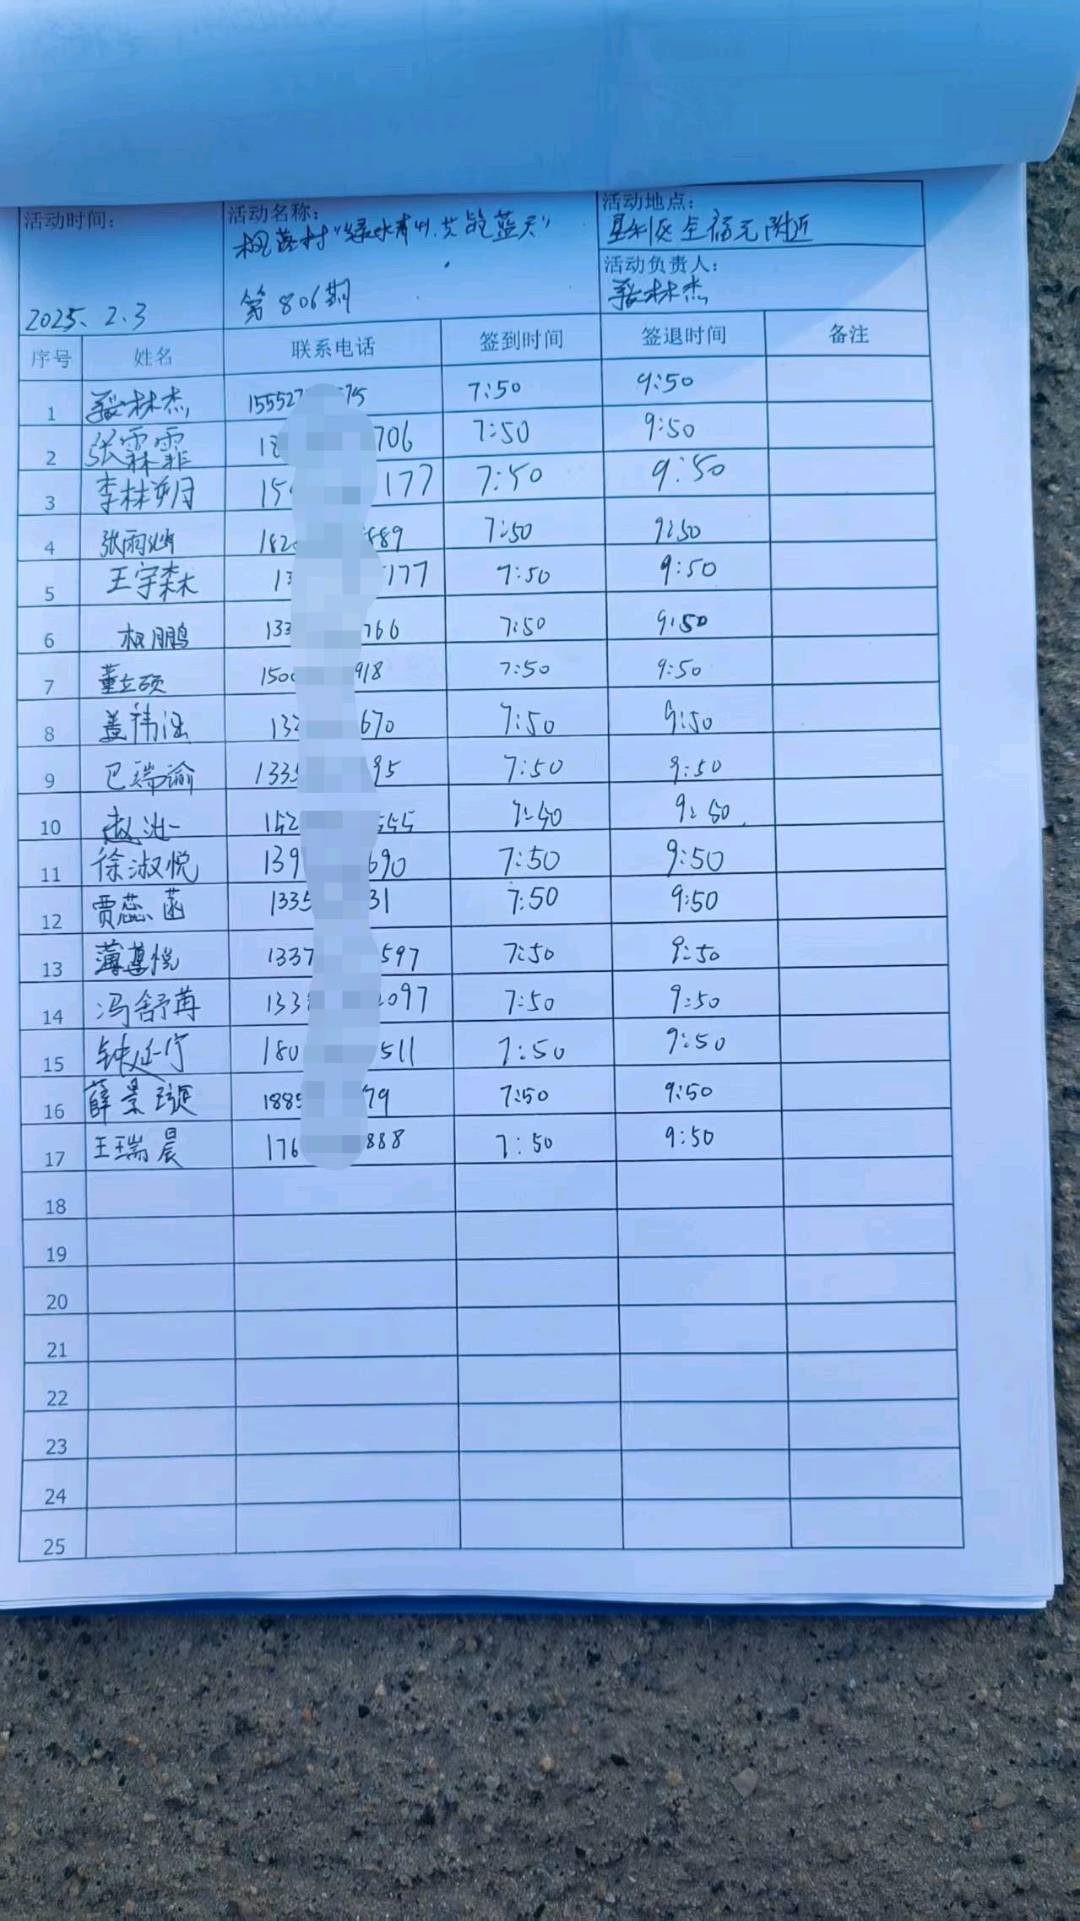 活动时间： 活动名称： 活动地点：
"绿水青山 共饱蓝天"
活动负责人：
2025. 2.3 第806期 林杰
序号 姓名 联系电话 签到时间 签退时间 备注
1 林杰 15552 75 7:50 9:50
2 张霖霏 18 706 7:50 9:50
3 李林朔 15 177 7:50 9:50
4 张雨 182 889 7:50 9:50
5 王宇森 13 177 7:50 9:50
6 鹏 133 766 7:50 9:50
7 董立硕 150 918 7:50 9:50
8 姜祎涵 13 670 7:50 9:50
9 巴瑞谕 1335 95 7:50 9:50
10 赵 152 555 7:50 9:50
11 徐淑悦 139 690 7:50 9:50
12 贾蕊菡 1335 31 7:50 9:50
13 薄 悦 1337 597 7:50 9:50
14 冯舒苒 133 097 7:50 9:50
15 钟 180 511 7:50 9:50
16 薛景璇 1885 79 7:50 9:50
17 王瑞晨 176 888 7:50 9:50
18
19
20
21
22
23
24
25